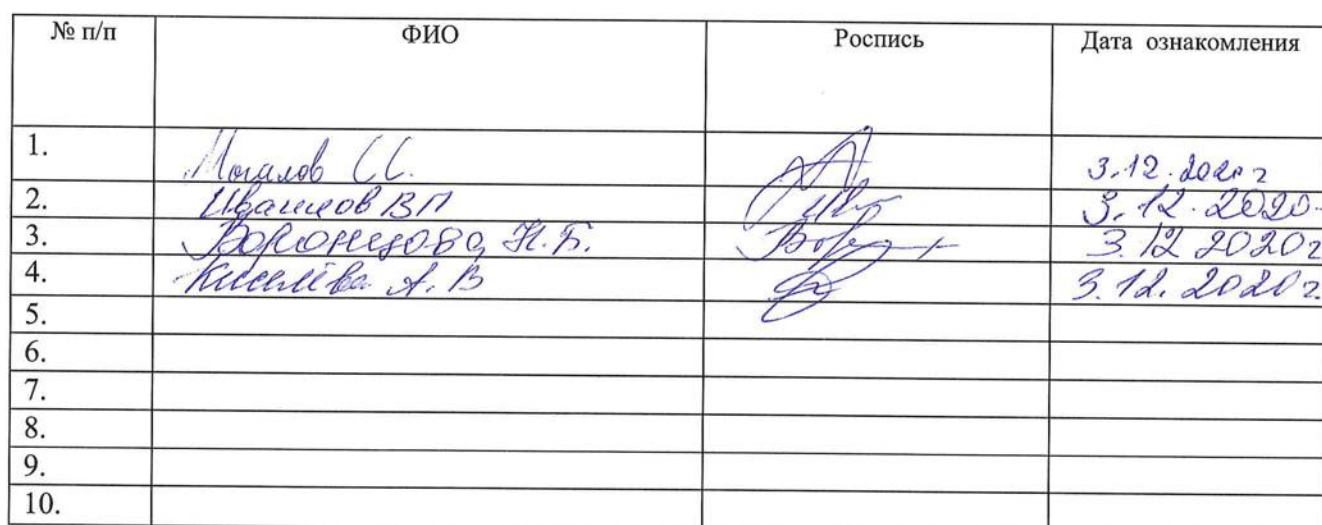 № п/п ФИО Роспись Дата ознакомления
1. С.С. 3.12.2020г
2. В П 3.12.2020
3. Воронцова Н.Б. 3.12 2020г
4. Киселёва А. В 3.12.2020г.
5.
6.
7.
8.
9.
10.